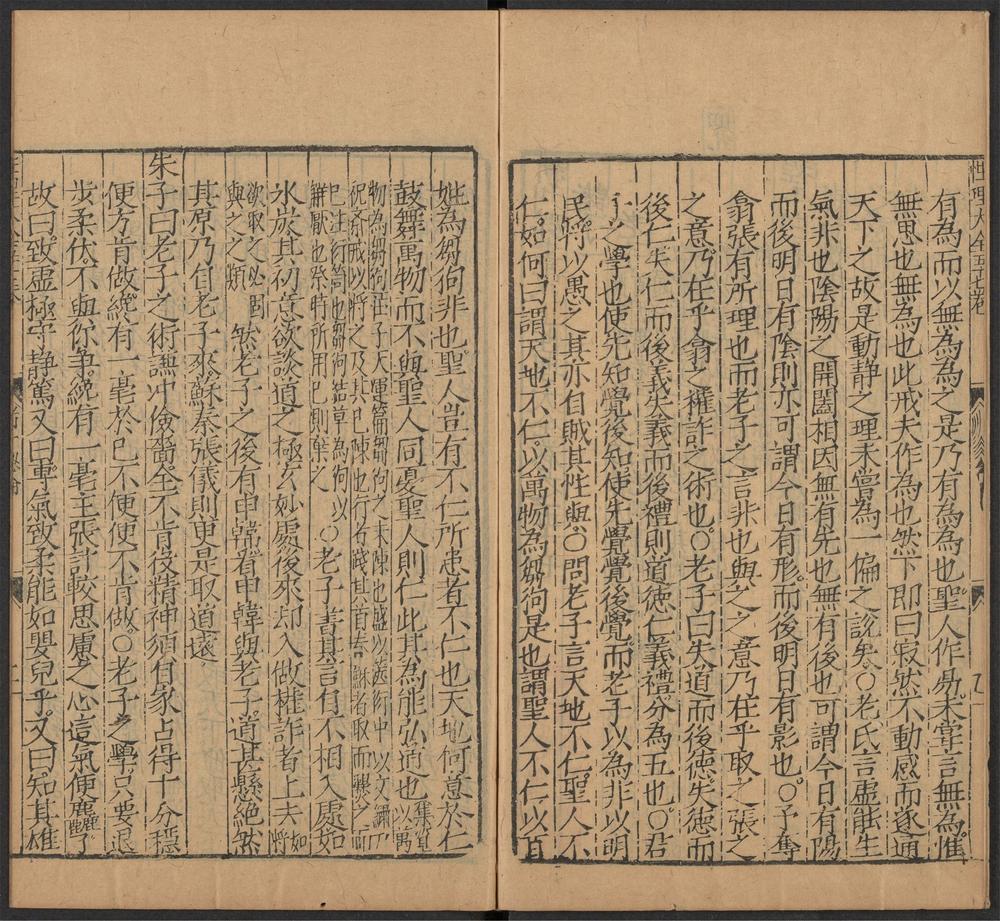 性理大全五十七卷
有為而以無為為之是乃有為為也聖人作易未嘗言無為惟
無思也無為也此戒夫作為也然下即曰寂然不動感而遂通
天下之故是動静之理未嘗為一偏之說矣○老氏言虚能生
氣非也陰陽之開闔相因無有先也無有後也可謂今日有陽
而後明日有陰則亦可謂今日有形而後明日有影也○予奪
翕張有所理也而老子之言非也與之之意乃在乎取之張之
之意乃在乎翕之權詐之術也○老子曰失道而後徳失徳而
後仁失仁而後義失義而後禮則道徳仁義禮分為五也○君
子之學也使先知覺後知使先覺覺後覺而老子以為非以明
民將以愚之其亦自賊其性與○問老子言天地不仁聖人不
仁如何曰謂天地不仁以萬物為芻狗是也謂聖人不仁以百
姓為芻狗非也聖人豈有不仁所患者不仁也天地何意於仁
鼓舞萬物而不與聖人同憂聖人則仁此其為能弘道也
物為芻狗莊子天運篇芻狗之未陳也盛以篋衍巾以文繡尸
祝齊戒以將之及其已陳也行者踐其首脊蘇者取而爨之而
已注衍笥也芻狗結草為狗以
解厭也祭時所用已則棄之
○老子書其言自不相入處如
氷炭其初意欲談道之極玄妙處後來却入做權詐者上去
如將
欲取之必固
與之之類
然老子之後有申韓看申韓與老子道甚懸絶然
其原乃自老子來蘇秦張儀則更是取道逺
朱子曰老子之術謙冲儉嗇全不肯役精神須自家占得十分穩
便方肯做纔有一毫於已不便便不肯做○老子之學只要退
步柔伏不與你爭纔有一毫主張計較思慮之心這氣便麤了
故曰致虚極守静篤又曰專氣致柔能如嬰兒乎又曰知其雄